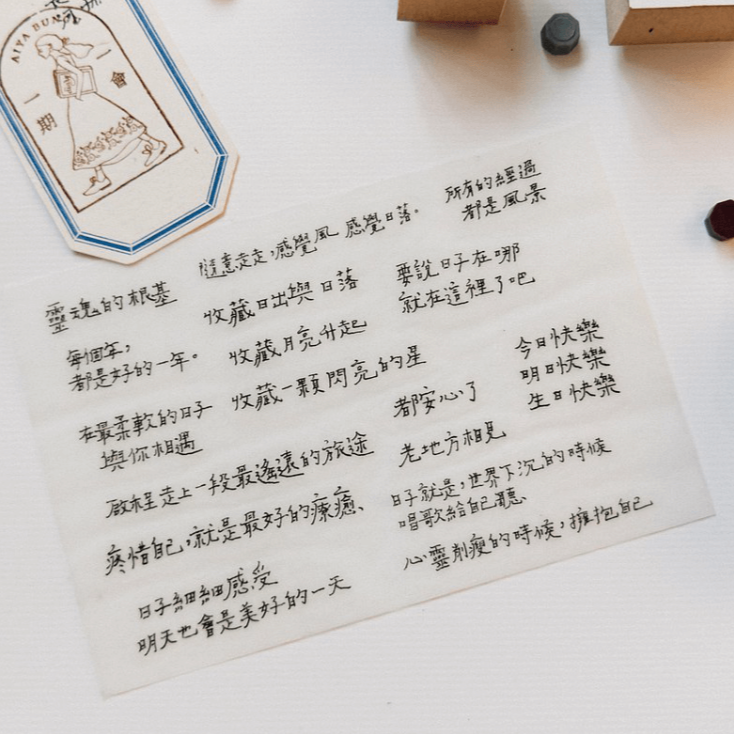 AIYA BUN
一期
一會
隨意走走，感覺風 感覺日落。
所有的經過
都是風景
靈魂的根基
收藏日出與日落
收藏月亮升起
收藏一顆閃亮的星
要說日子在哪
就在這裡了吧
每個年，
都是好的一年。
今日快樂
明日快樂
生日快樂
在最柔軟的日子
與你相遇
都安心了
老地方相見
啟程走上一段最遙遠的旅途
日子就是，世界下沉的時候
唱歌給自己聽、
疼惜自己，就是最好的療癒、
心靈削瘦的時候，擁抱自己
日子細細感受
明天也會是美好的一天